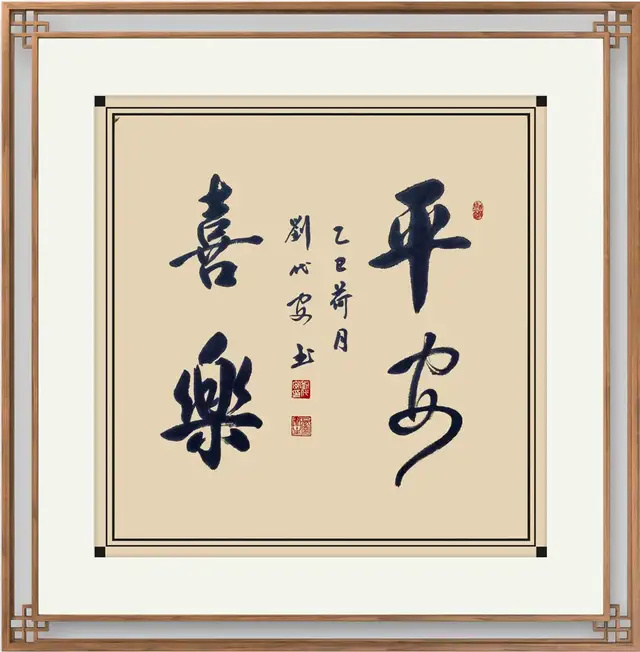 平安
喜樂
乙巳荷月
劉代安书